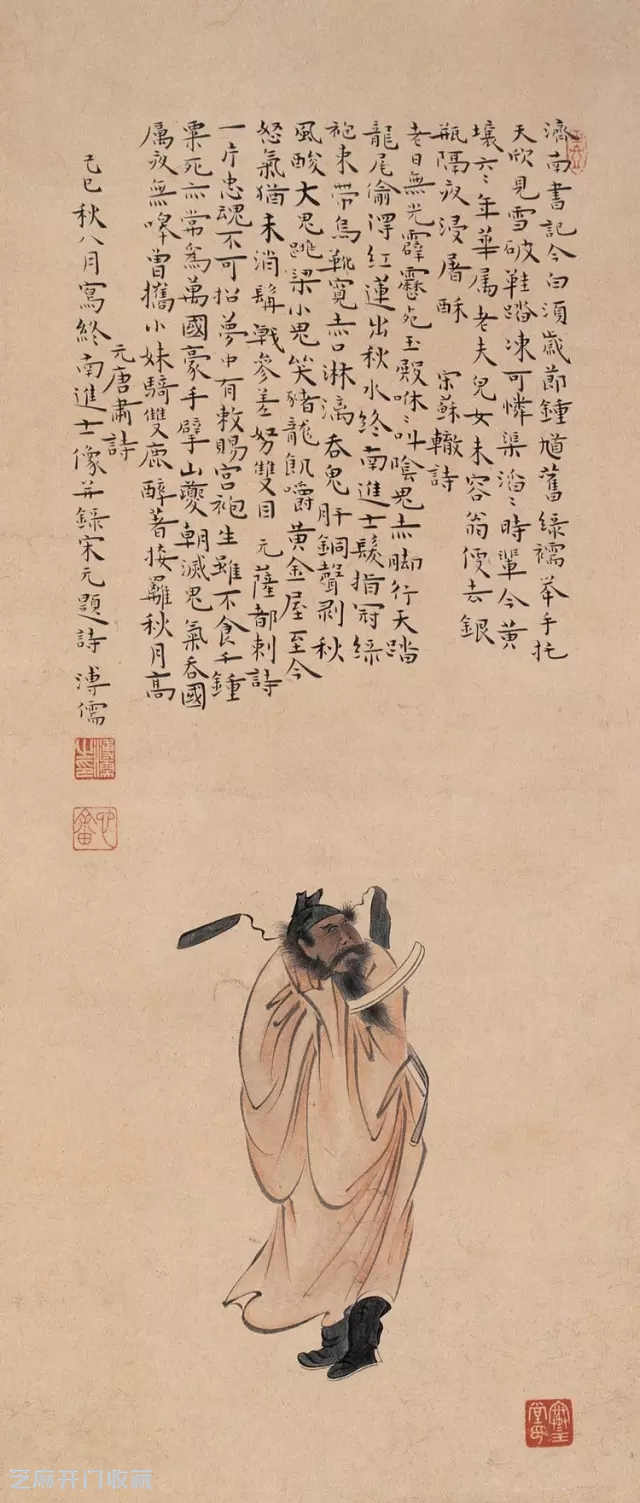 濟南書記今白須歲節鍾馗舊綠襦举手托
天欣見雪破鞋踏凍可憐渠滔〻時輩今黄
壤六〻年華属老夫兒女未容翁便去銀
瓶隔夜浸屠酥 宋蘇轍詩
老日無光霹靂死玉殿咻〻叫陰鬼赤脚行天踏
龍尾偷得紅蓮出秋水終南進士髮指冠綠
袍束帶烏靴寛赤口淋漓吞鬼肝銅聲剥秋
風酸大鬼跳梁小鬼笑豬龍飢嚼黄金屋至今
怒氣猶未消髯戟參差努雙目 元薩都刺詩
一片忠魂不可招夢中有敕賜宫袍生雖不食千鍾
粟死亦常爲萬國豪手擘山夔朝滅鬼氣吞國
属夜無嘷曾攜小妹騎雙鹿醉著接䍦秋月高
元唐肅詩
己巳秋八月寫終南進士像并錄宋元題詩 溥儒
溥儒之印
芝麻开门收藏